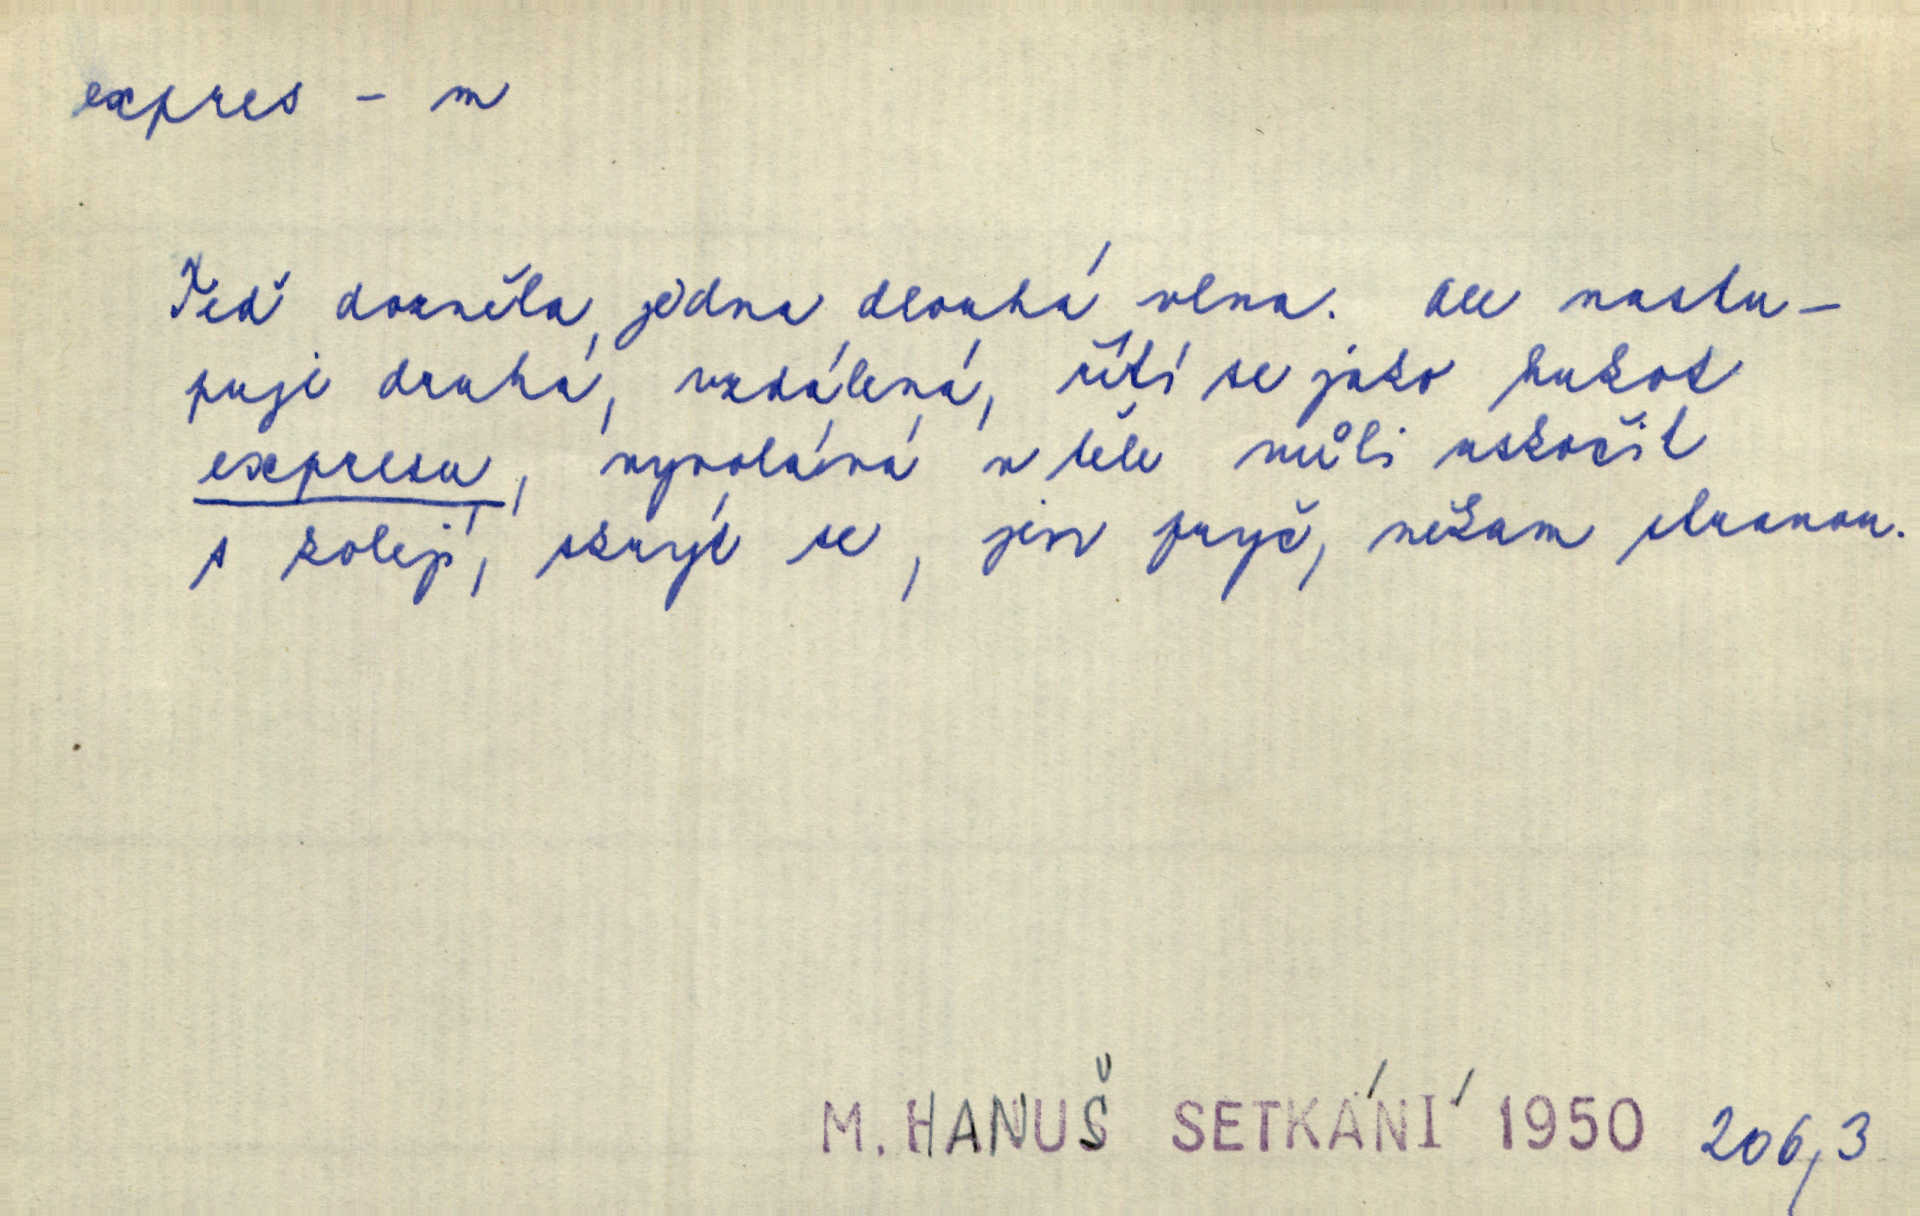 expres – m
Teď dozněla jedna dlouhá vlna. Ale nastu-
puje druhá, vzdálená, řítí se jako hukot
expresu, vyvolává v těle vůli uskočit
s kolejí, skrýt se, jen pryč, někam stranou.
M. HANUŠ SETKÁNÍ 1950 206,3